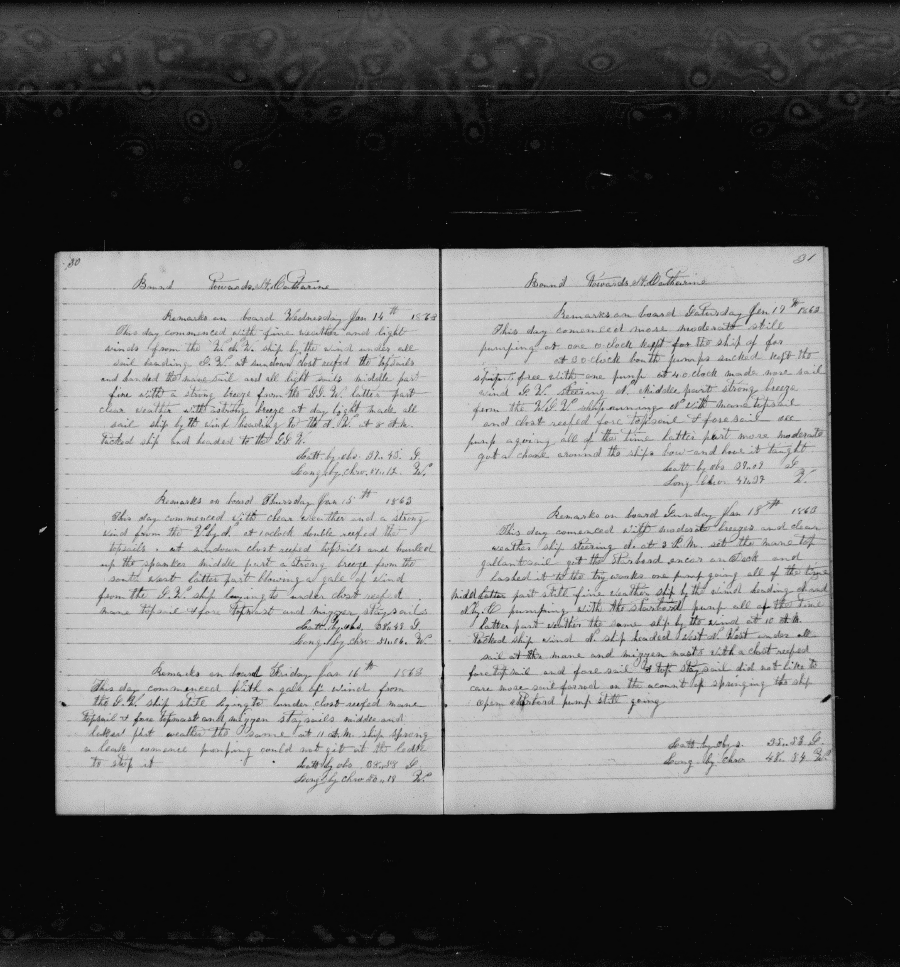 30
Bound Towards St. Catharine
Remarks on board Wednesday Jan 14th 1863
This day commenced with fine weather and light
winds from the ship by the wind under all
sail heading S.W. at sundown clost reefed the topsails
and handed the mane sail and all light sails middle part
fine with a strong breeze from the latter part
clear weather with a strong breeze at day light made all
sail ship by the wind heading to the W. at 8 A.M.
tacked ship and headed to the
Latt by obs. S.
Long by chro. W.
Remarks on board Thursday Jan 15th 1863
This day commenced with clear weather and a strong
wind from the at 1 oclock double reefed the
topsails. at sundown clost reefed topsails and hauled
up the spanker middle part a strong breeze from the
south west latter part blowing a gale of wind
from the S.W. ship laying to under clost reefed
mane topsail & fore topmast and mizzen staysails
Latt. by obs. 38.43 S.
Long by chro W.
Remarks on board Friday Jan 16th 1863
This day commenced with a gale of wind from
the S.W. ship still lying to under clost reefed mane
topsail & fore topmast and mizzen staysails middle and
latter part weather the same at 11 A.M. ship sprung
a leak comence pumping could not git at the
to stop it
Latt by obs 38..38 S.
Long by chro 50..19 W.
31
Bound Towards St. Catharine
Remarks on board Saturday Jan 17th 1863
This day comenced more moderate still
pumping at one oclock kept for the ship of far
at 3 oclock bouth pumps sucked kept the
ship free with one pump at 4 oclock made more sail
wind S.W. Steering N. Middle part strong breeze
from the W.S.W. ship running N with mane topsail
and clost reefed fore topsail & foresail one
pump agoing all of the time latter part more moderate
got a chane around the ships bow and hove it taught
Latt by obs S.
Long chro W.
Remarks on board Sunday Jan 18th 1863
This day comenced with moderate breezes and clear
weather ship steering N. at 3 P.M. set the mane top
gallant sail got the starbord ancor on deck and
lashed it to the try works one pump going all of the time
midd latter part still fine weather ship by the wind heading
pumping with the starbord pump all of the time
latter part weather the same ship by the wind at 10 A.M.
tacked ship wind N. ship headed West N. West under all
sail at the mane and mizzen masts with a clost reefed
fore topsail and fore sail & top stay sail did not like to
care more sail forred on the acount of springing the ship
open starbord pump still going
Latt. by obs. S.
Long. by chro W.